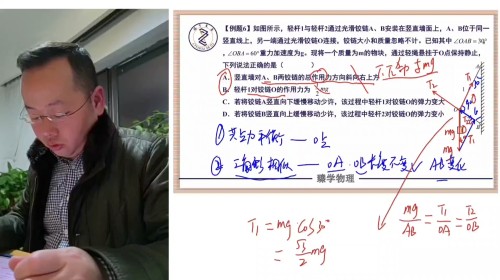 【例题6】如图所示，轻杆1与轻杆2通过光滑铰链A、B安装在竖直墙面上，A、B位于同一
竖直线上，另一端通过光滑铰链O连接，铰链大小和质量忽略不计。已知其中∠OAB=30°
∠OBA=60°重力加速度为g。现将一个质量为m的物块，通过轻绳悬挂于O点保持静止，
下列说法正确的是（ ）
A. 竖直墙对A、B两铰链的总作用力方向斜向右上方
B. 轻杆1对铰链O的作用力为
C. 若将铰链A竖直向下缓慢移动少许，该过程中轻杆1对铰链O的弹力变大
D. 若将铰链B竖直向上缓慢移动少许，该过程中轻杆2对铰链O的弹力变小
① 共点力平衡 — O点
② 三角形相似 — OA OB长度不变 AB变化
臻学物理
T₁ = mg cos30°
= √3/2 mg
mg/AB = T₁/OA = T₂/OB